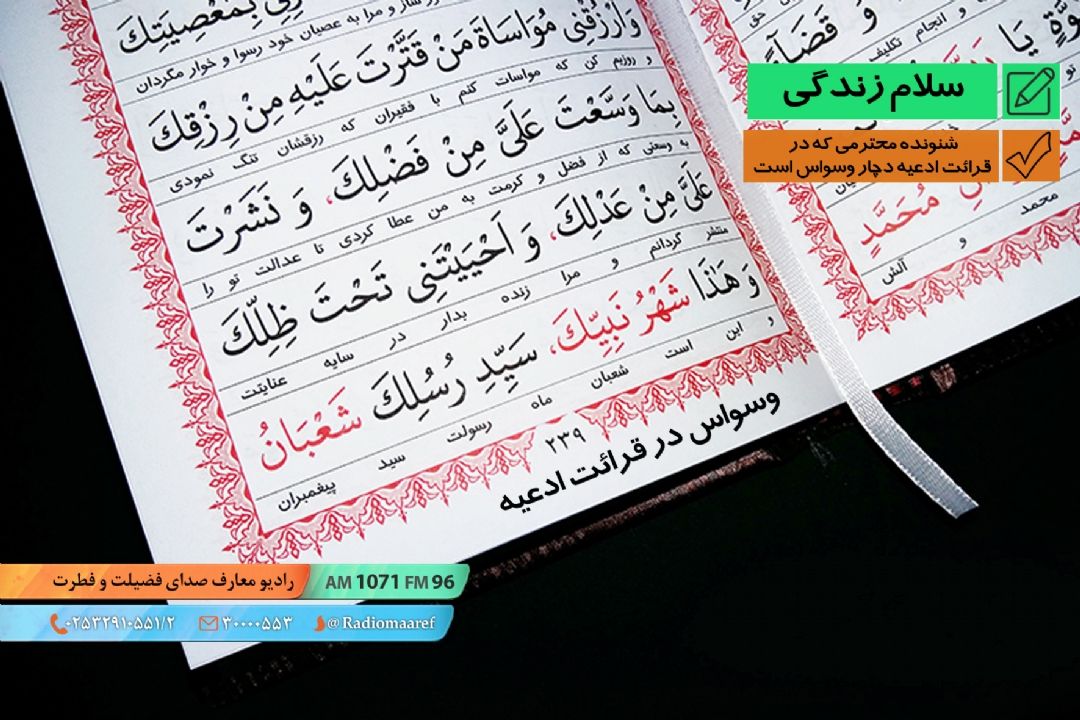 بِمَعْصِيَتِكَ
و مرا به عصیان خود رسوا و خوار مگردان
وَ ارْزُقْنِي مُوَاسَاةَ مَنْ قَتَّرْتَ عَلَيْهِ مِنْ رِزْقِكَ
و روزیم کن که مواسات کنم با فقیران که رزقشان تنگ نمودی
بِمَا وَسَّعْتَ عَلَيَّ مِنْ فَضْلِكَ، وَ نَشَرْتَ
به وسعتی که از فضل و کرمت به من عطا کردی تا عدالت تو را
عَلَيَّ مِنْ عَدْلِكَ، وَ اَحْيَيْتَنِي تَحْتَ ظِلِّكَ
منتشر گردانم و مرا زنده بدار در سایه عنایتت
وَ هَذَا شَهْرُ نَبِيِّكَ، سَيِّدِ رُسُلِكَ شَعْبَانُ
و این است شعبان ماه رسولت سید پیغمبران
۲۳۹
وسواس در قرائت ادعیه
وَ قَضَاءً
و انجام تکلیف
مُحَمَّدٍ
محمد و آلش
سلام زندگی
شنونده محترمی که در
قرائت ادعیه دچار وسواس است
رادیو معارف صدای فضیلت و فطرت
AM 1071 FM 96
۰۲۵۳۲۹۱۰۵۵۱/۲
۳۰۰۰۰۵۵۳
@Radiomaaref